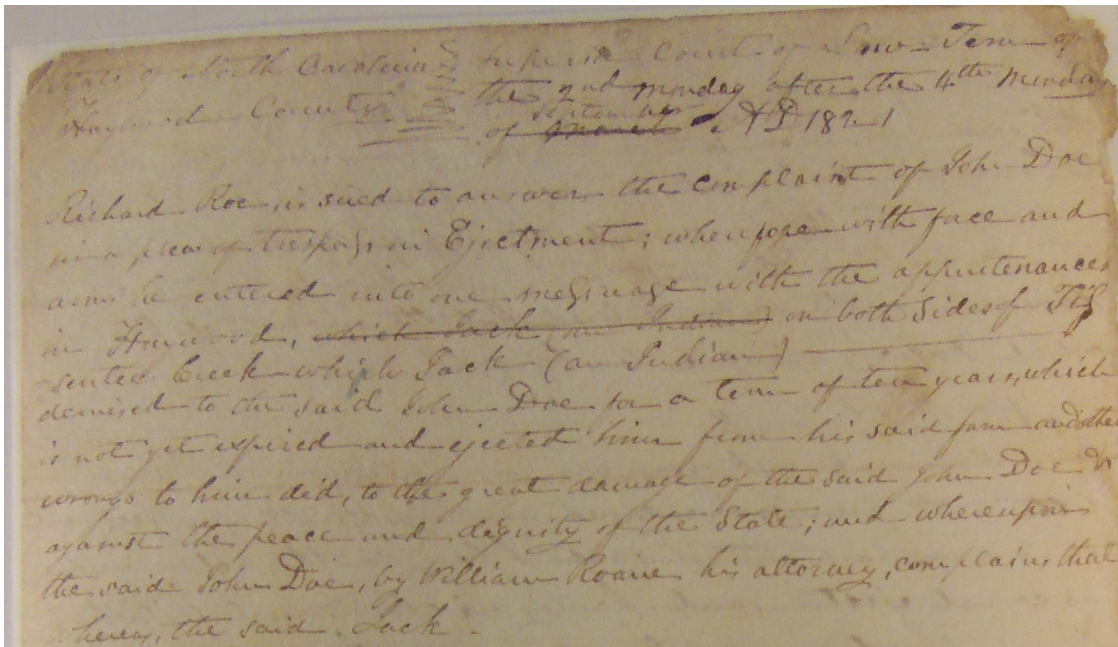 State of North Carolina Superior Court of Law Term of
Haywood County the 2nd monday after the 4th Monday
September
of March AD 1821
Richard Roe, is sued to answer the complaint of John Doe
in a plea of trespass in Ejectment; wherefore with force and
arms he entered into one messuage with the appurtenances
in Haywood, which Jack (an Indian) on both sides of Tus
=sentee Creek which Jack (an Indian)
demised to the said John Doe for a term of ten years, which
is not yet expired and ejected him from his said farm and other
wrongs to him did, to the great damage of the said John Doe &
against the peace and dignity of the State; and whereupon
the said John Doe, by William Roane his attorney, complains that
whereas, the said Jack